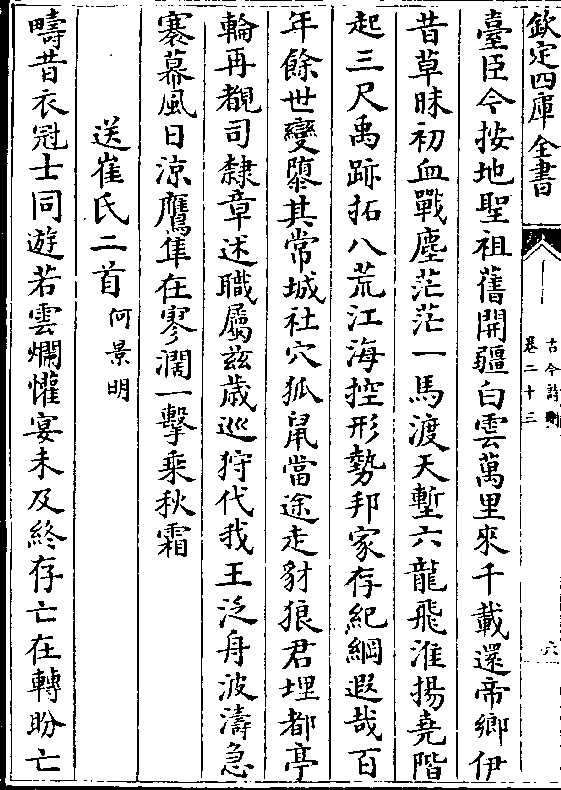 欽定四庫全書
古今詩刪
卷二十三
六
臺臣今按地聖祖舊開疆白雲萬里來千載還帝鄉伊
昔草昧初血戰塵茫茫一馬渡天塹六龍飛淮揚堯階
起三尺禹跡拓八荒江海控形勢邦家存紀綱遐哉百
年餘世變隳其常城社穴狐鼠當途走豺狼君埋都亭
輪再覩司隸章述職屬茲歲巡狩代我王泛舟波濤急
褰幕風日涼鷹隼在寥濶一擊乘秋霜
送崔氏二首何景明
疇昔衣冠士同遊若雲爛懽宴未及終存亡在轉盼亡